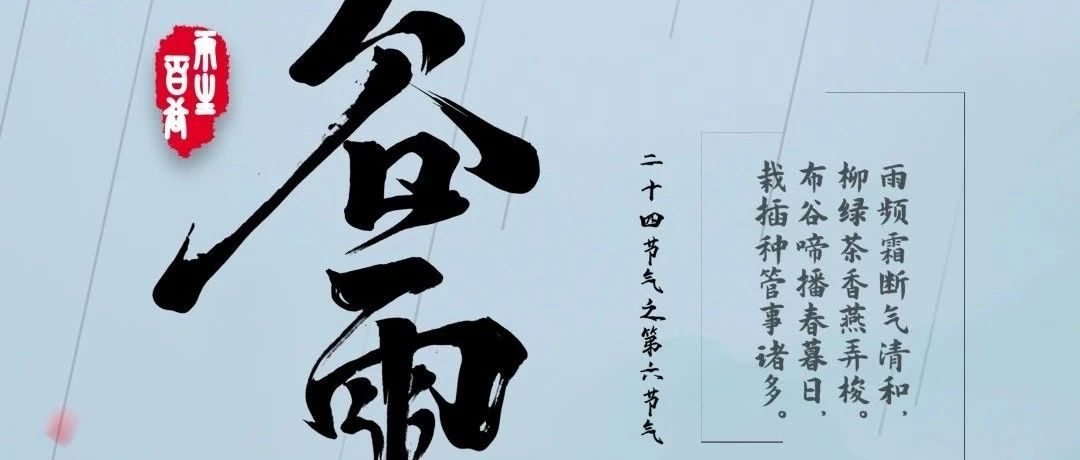 谷雨
二十四节气之第六节气
雨频霜断气清和，
柳绿茶香燕弄梭。
布谷啼播春暮日，
栽插种管事诸多。